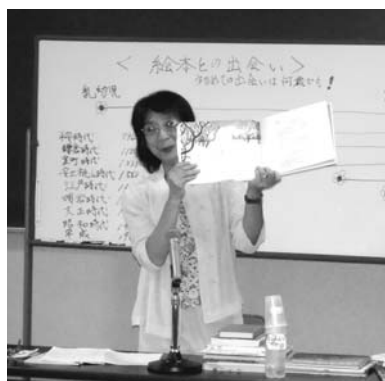 ＜ 絵本との出会い＞
初めての出会いは何歳から!
乳幼児
平安時代
鎌倉時代
室町時代
安土桃山時代
江戸時代
明治時代
大正時代
昭和時代
平成